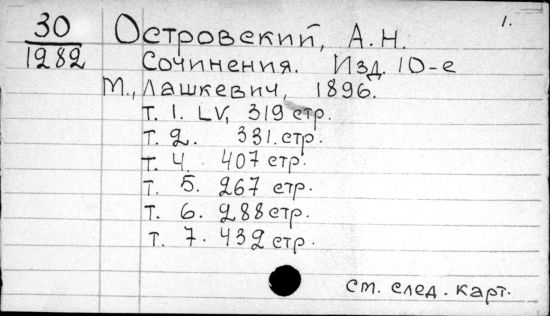 30
1282
1.
Островский, А.Н.
Сочинения. Изд. 10-е
М., Лашкевич, 1896.
т. 1. LV, 319 стр.
т. 2. 331. стр.
т. 4. 407 стр.
т. 5. 267 стр.
т. 6. 288 стр.
т. 7. 432 стр.
см. след. карт.